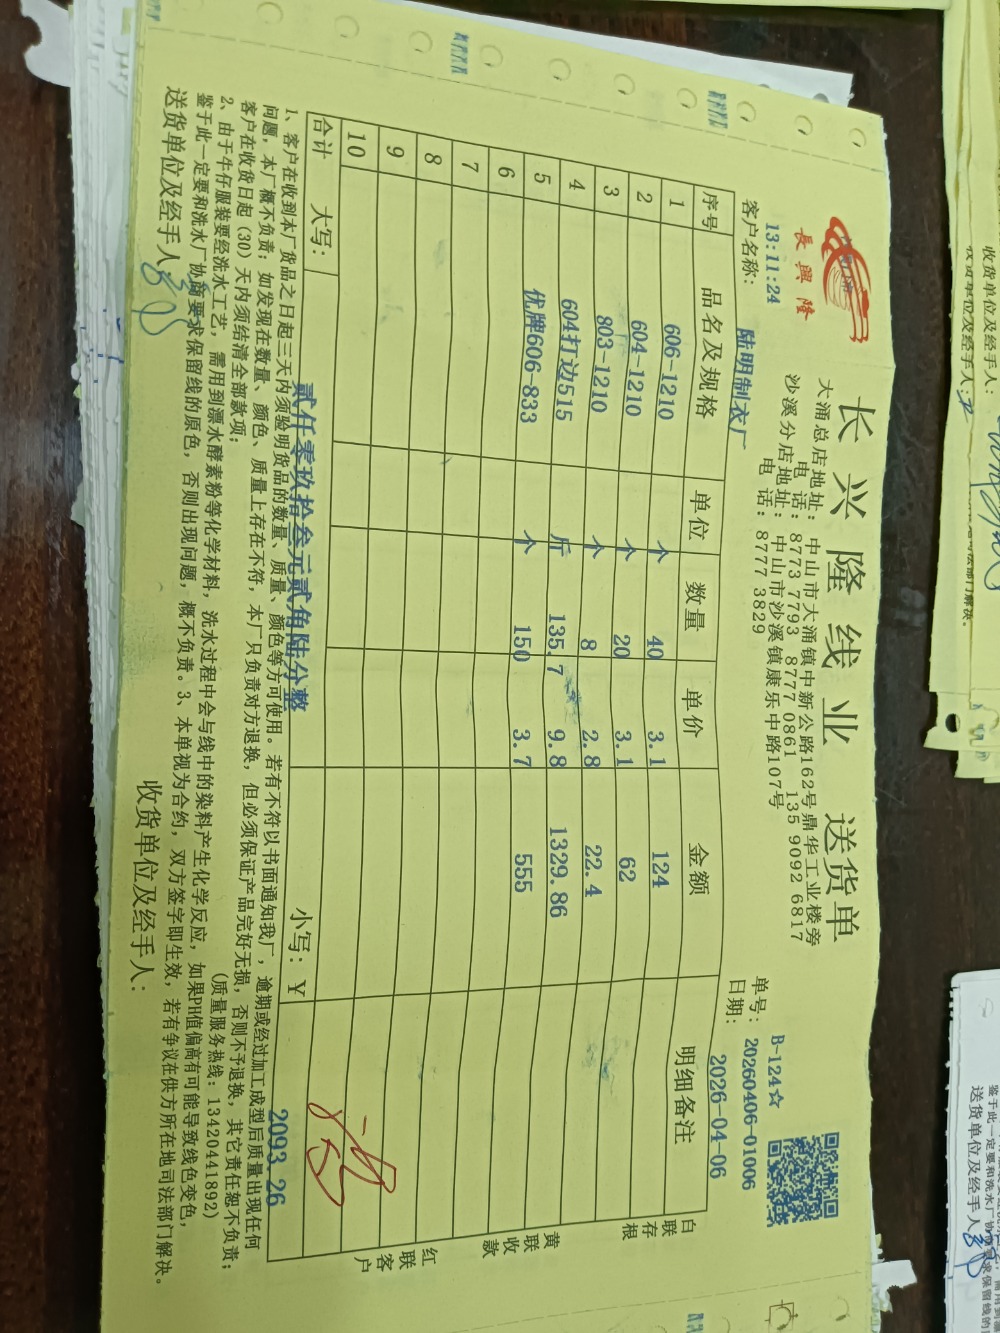 長興隆
长兴隆线业 送货单
大涌总店地址：中山市大涌镇中新公路162号鼎华工业楼旁
电话：8773 7793 8777 0861 135 9092 6817
沙溪分店地址：中山市沙溪镇康乐中路107号
电话：8777 3829
13:11:24
B-124☆
单号：20260406-01006
客户名称：陆明制衣厂
日期：2026-04-06
序号 品名及规格 单位 数量 单价 金额 明细备注
1 606-1210 个 40 3.1 124
2 604-1210 个 20 3.1 62
3 803-1210 个 8 2.8 22.4
4 604打边515 斤 135.7 9.8 1329.86
5 优牌606-833 个 150 3.7 555
6
7
8
9
10
合计 大写：贰仟零玖拾叁元贰角陆分整 小写：￥ 2093.26
白联存根
黄联收款
红联客户
1、客户在收到本厂货品之日起三天内须验明货品的数量、质量、颜色等方可使用。若有不符以书面通知我厂，逾期或经过加工成型后质量出现任何
问题，本厂概不负责；如发现在数量、颜色、质量上存在不符，本厂只负责对方退换，但必须保证产品完好无损，否则不予退换，其它责任恕不负责；
客户在收货日起（30）天内须结清全部款项；
（质量服务热线：13420441892）
2、由于牛仔服装要经洗水工艺，需用到漂水酵素粉等化学材料，洗水过程中会与线中的染料产生化学反应，如果PH值偏高有可能导致线色变色，
鉴于此一定要和洗水厂协商要求保留线的原色，否则出现问题，概不负责。3、本单视为合约，双方签字即生效，若有争议在供方所在地司法部门解决。
送货单位及经手人：
收货单位及经手人：
收货单位及经手人：
送货单位及经手人